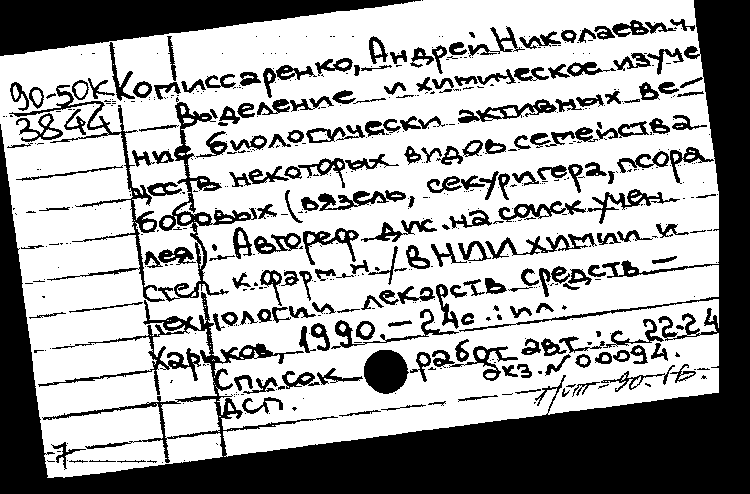 90-50к Комиссаренко, Андрей Николаевич.
3844 Выделение и химическое изуче
ние биологически активных ве-
ществ некоторых видов семейства
бобовых (вязель, секуригера, псора
лея): Автореф. дис. на соиск. учен.
степ. к. фарм. н. / ВНИИ химии и
технологии лекарств. средств –
Харьков, 1990. – 24с. : ил.
Список работ авт.: с. 22-24
ДСП. экз. N 00094.
7